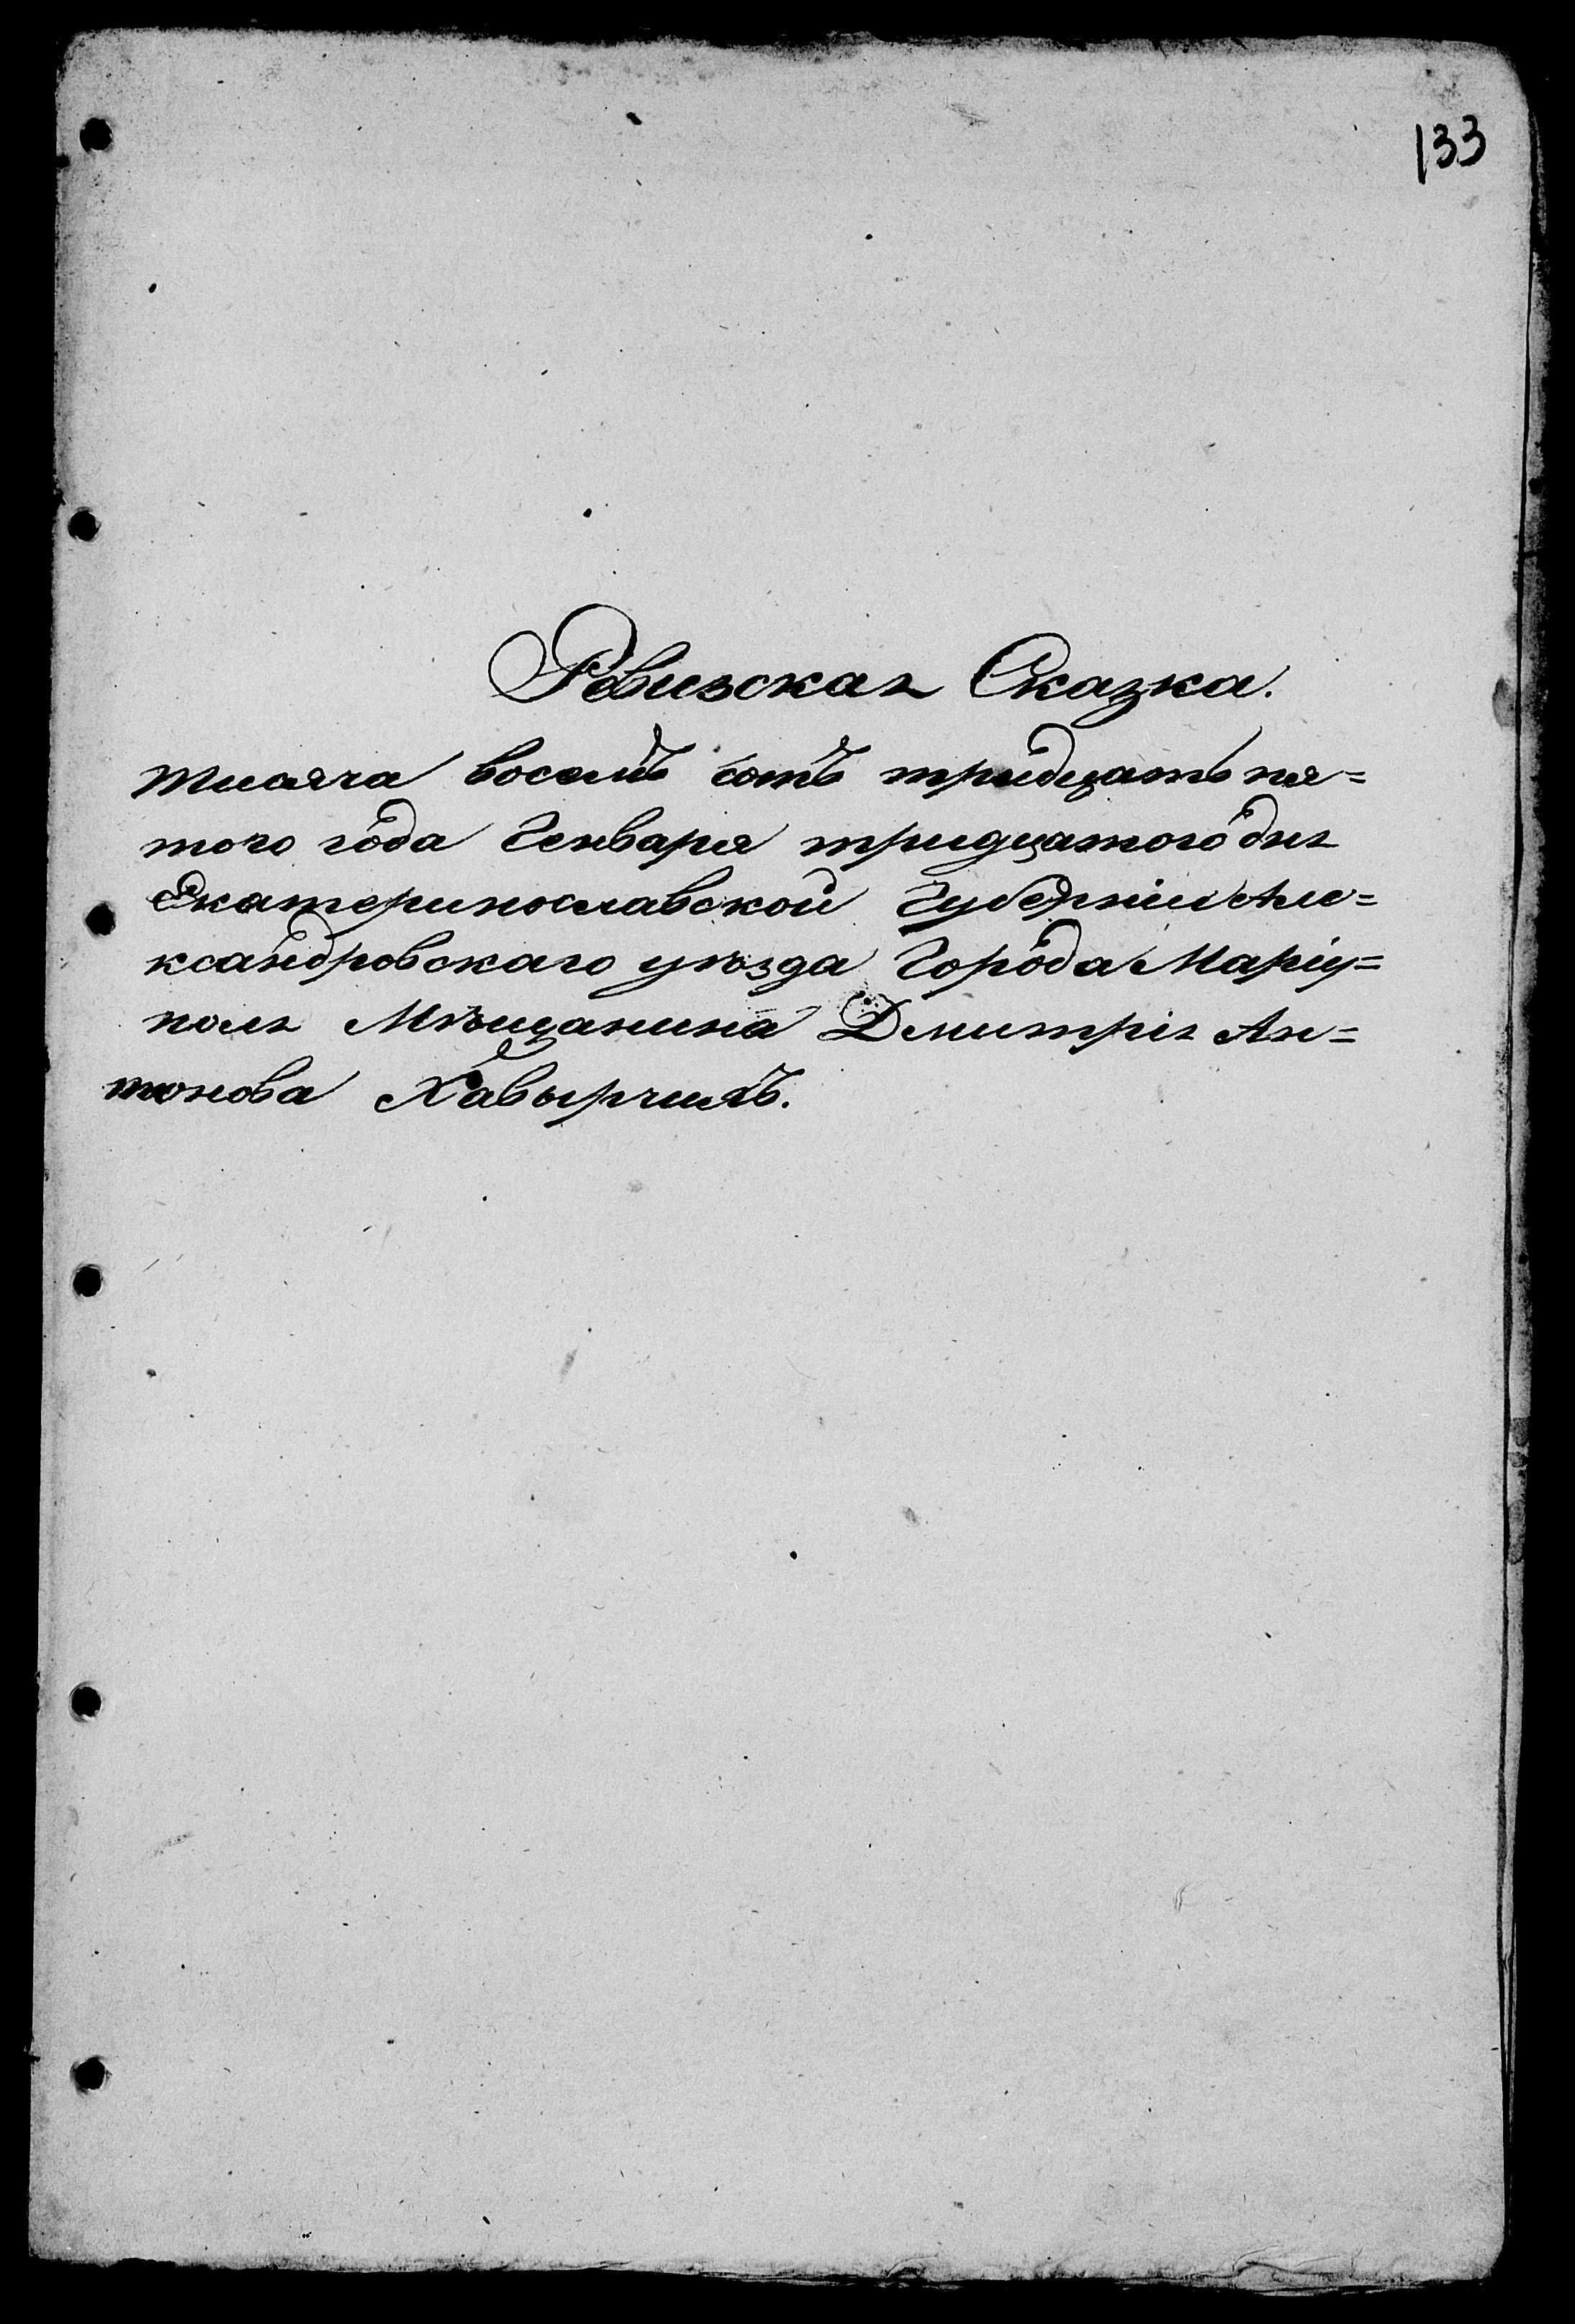 133
Ревизская Сказка.
тисяча восемъ сотъ тридцать пя=
того года Генваря тридцатого дня
Екатеринославской Губерніи Але=
ксандровскаго уѣзда Города Маріу=
поля Мѣщанина Дмитрія Ан=
тонова